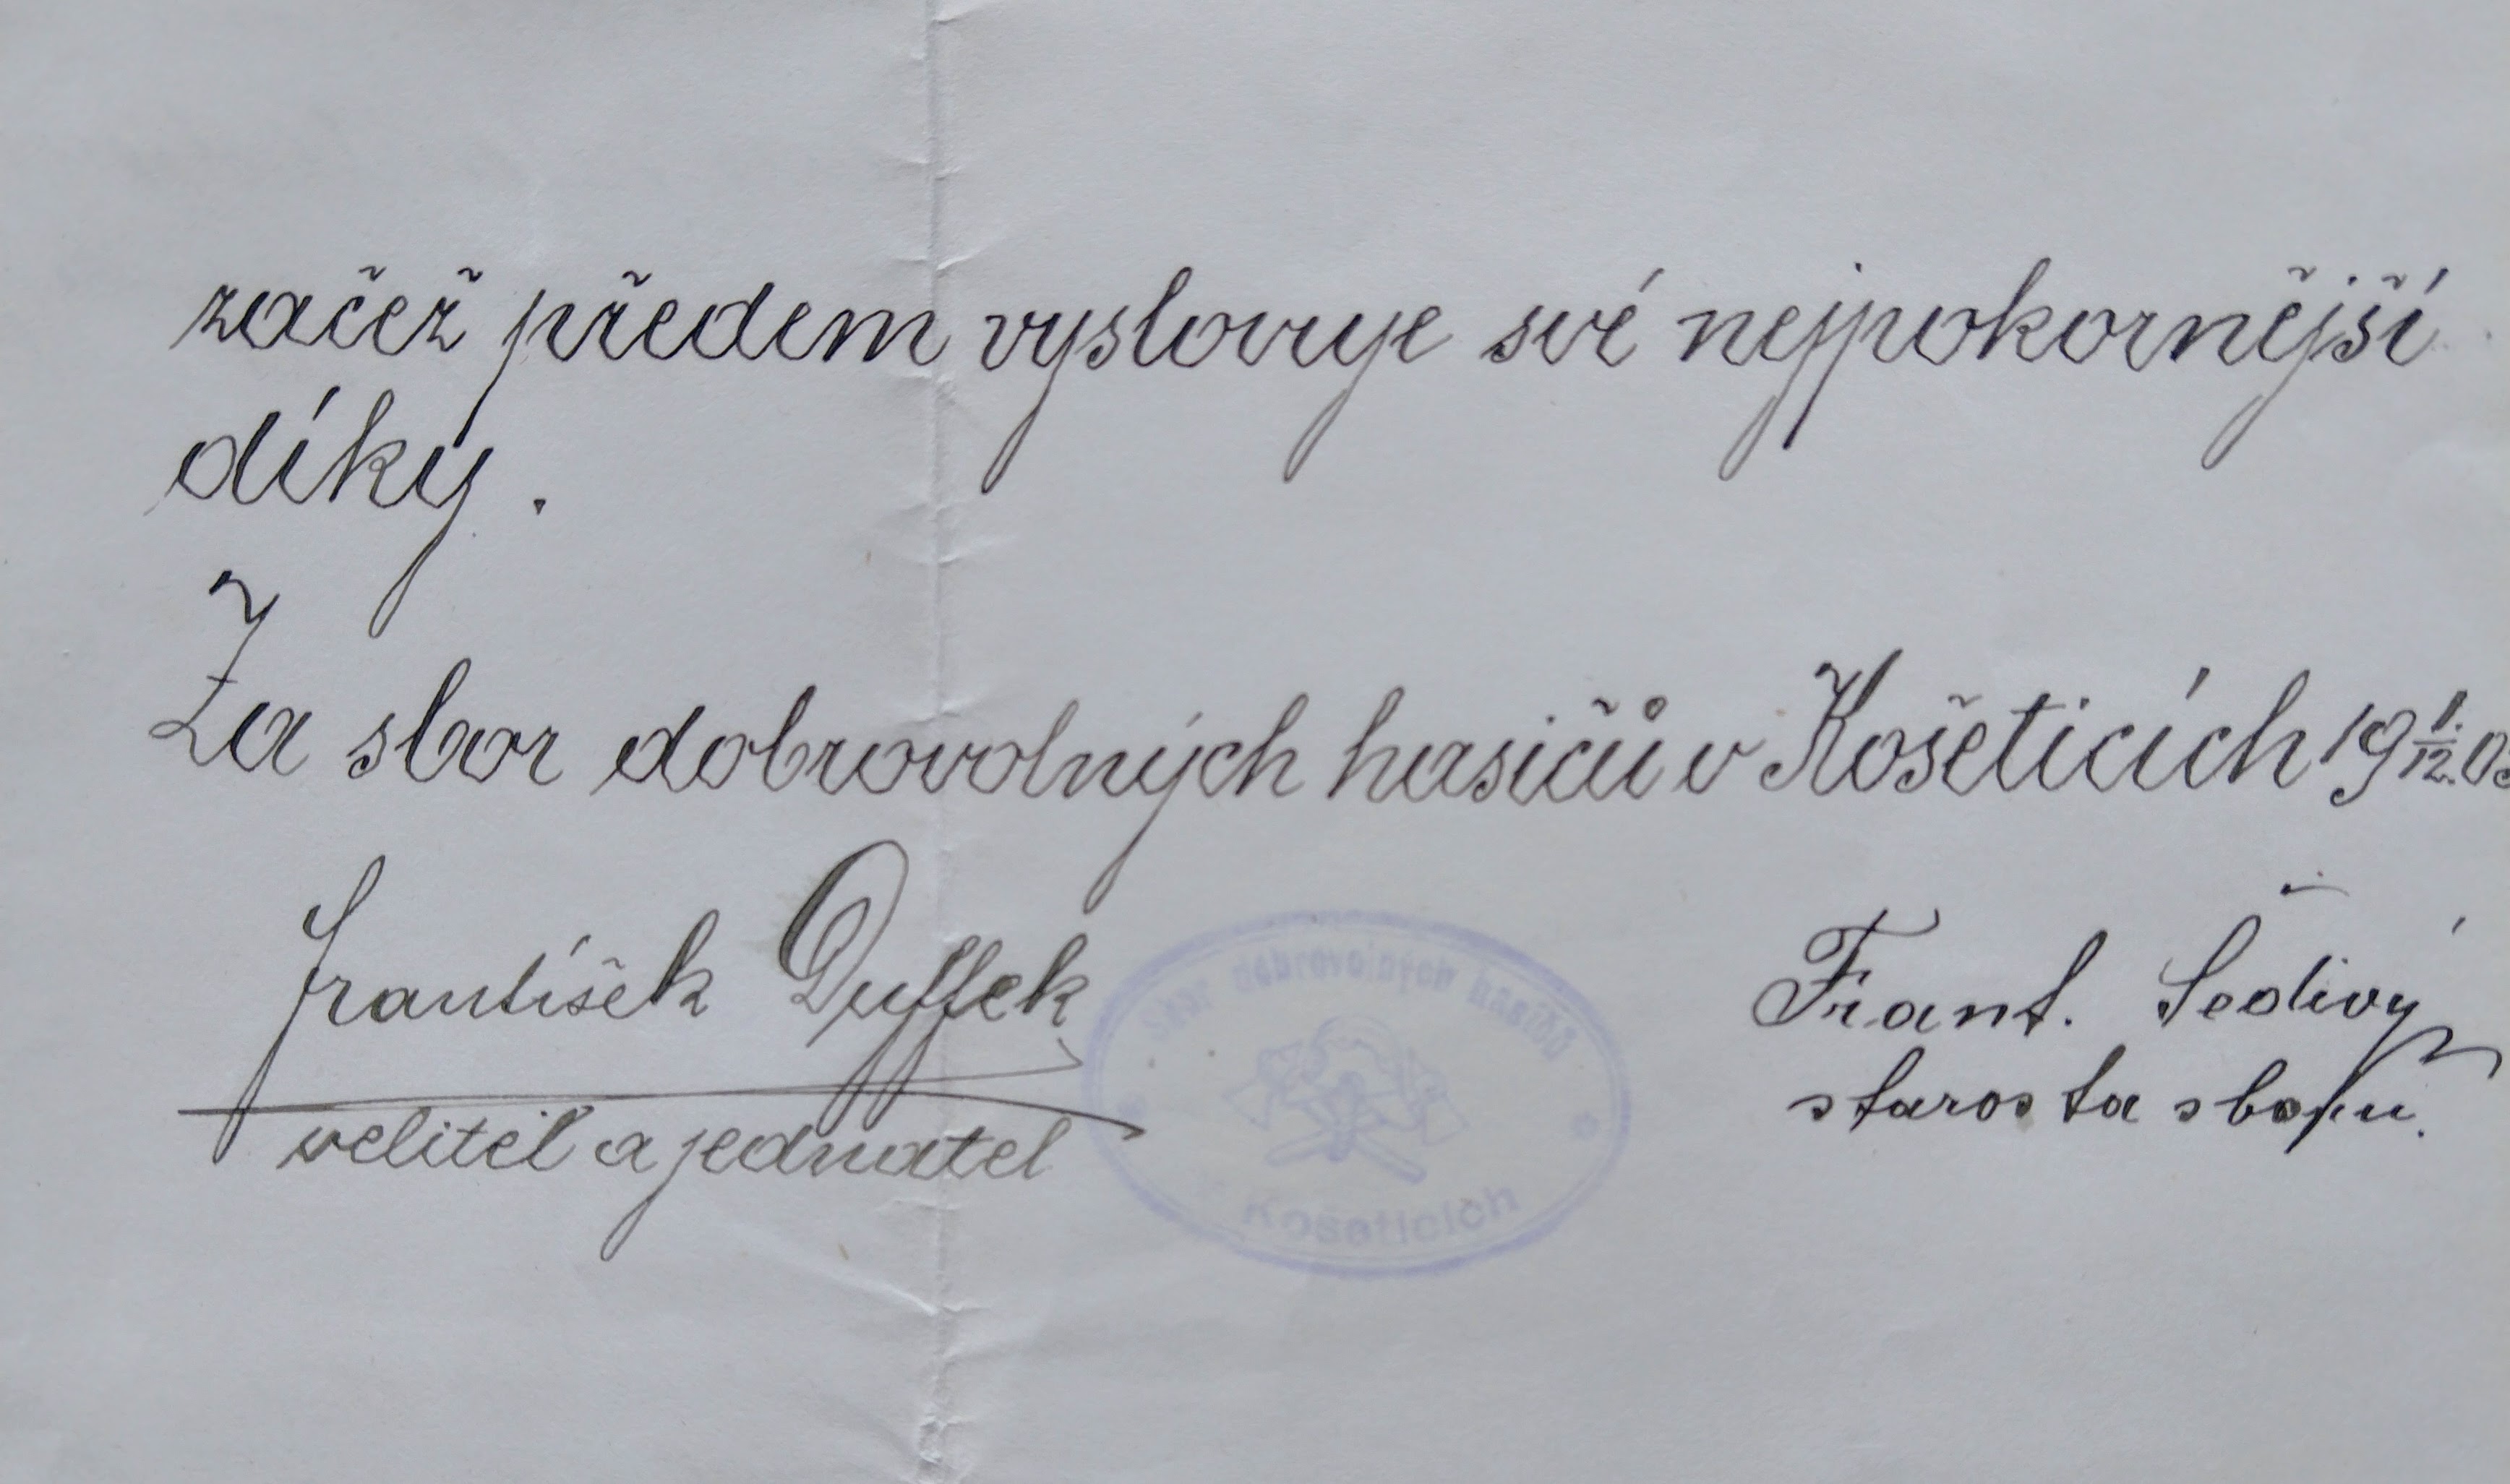 začež předem vyslovuje své nejpokornější
díky.
Za sbor dobrovolných hasičů v Košeticích 19 1./12. 03
František Duffek
velitel a jednatel
Sbor dobrovolných hasičů
v Košeticích
Frant. Šedivý
starosta sboru.